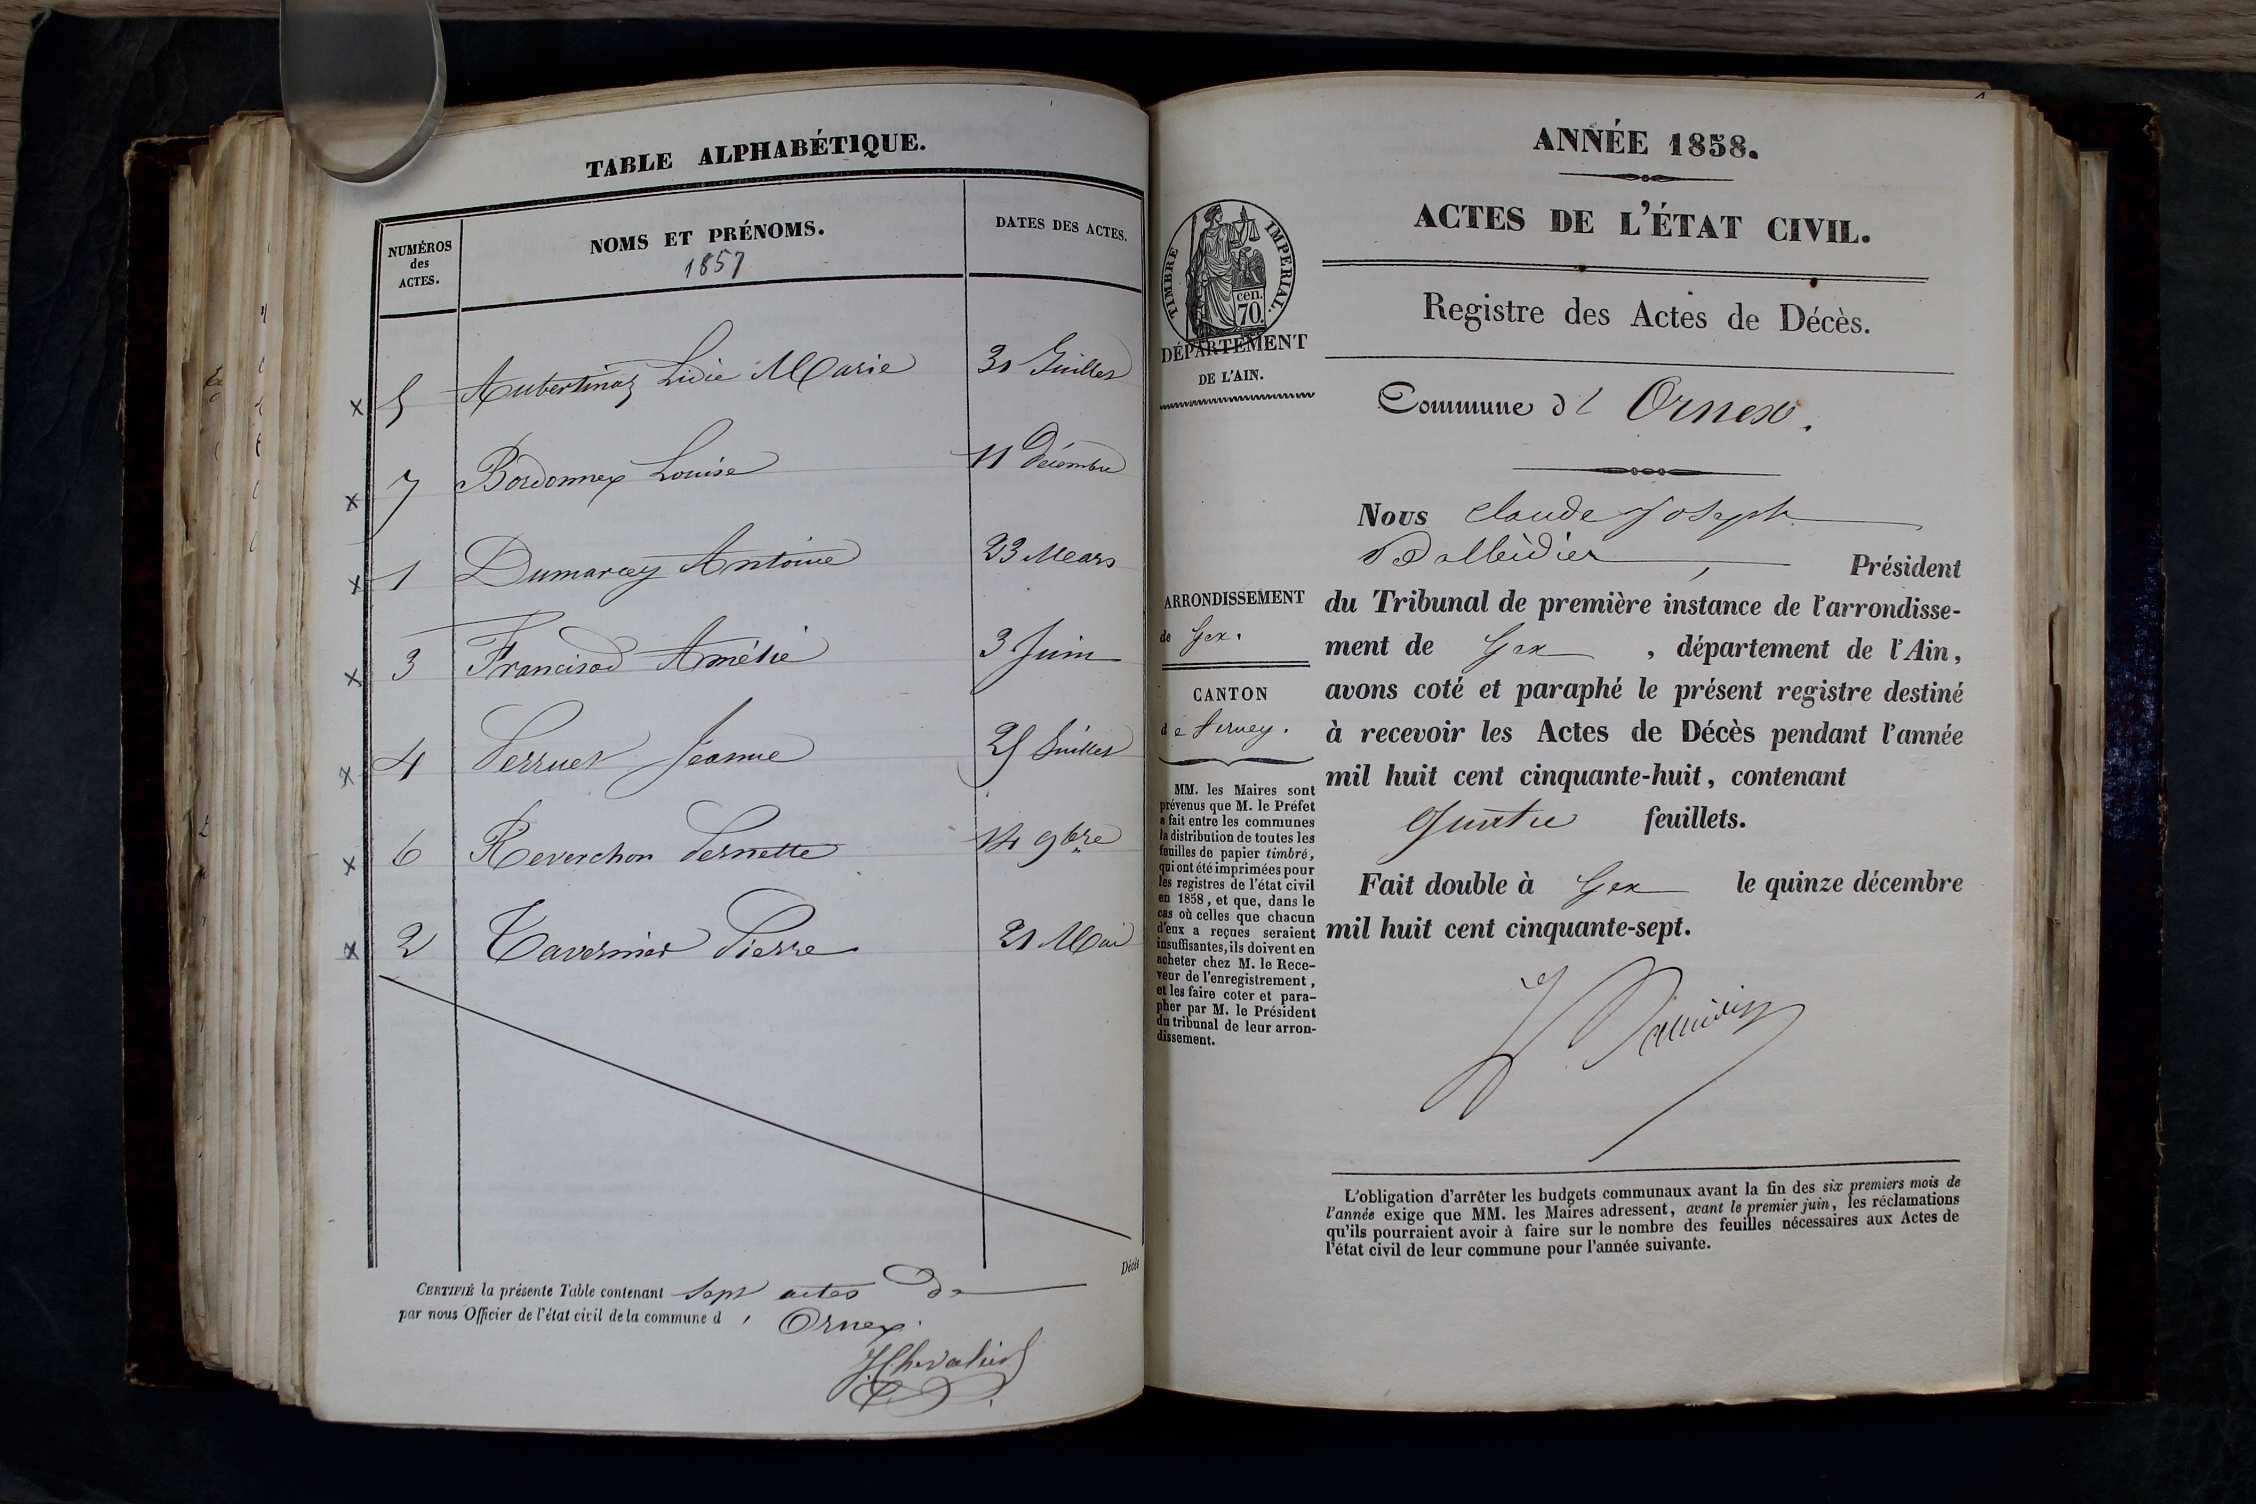 TABLE ALPHABÉTIQUE.
NUMÉROS
des
ACTES.
NOMS ET PRÉNOMS.
1857
DATES DES ACTES.
x 5 Aubertinaz Lidie Marie 31 Juillet
x 7 Bordonnex Louise 11 Décembre
x 1 Dumarcey Antoine 23 Mars
x 3 Francisod Amélie 3 Juin
x 4 Perruet Jeanne 25 Juillet
x 6 Reverchon Pernette 14 9bre
x 2 Tavernier Pierre 21 Mai
Décès
CERTIFIÉ la présente Table contenant sept actes de
par nous Officier de l'état civil de la commune d' Ornex.
J. Chevalier
ANNÉE 1858.
ACTES DE L'ÉTAT CIVIL.
Registre des Actes de Décès.
TIMBRE IMPERIAL.
70 cen.
DÉPARTEMENT
DE L'AIN.
Commune d' Ornex.
ARRONDISSEMENT
de Gex.
CANTON
de Ferney.
MM. les Maires sont
prévenus que M. le Préfet
a fait entre les communes
la distribution de toutes les
feuilles de papier timbré,
qui ont été imprimées pour
les registres de l'état civil
en 1858, et que, dans le
cas où celles que chacun
d'eux a reçues seraient
insuffisantes, ils doivent en
acheter chez M. le Rece-
veur de l'enregistrement,
et les faire coter et para-
pher par M. le Président
du tribunal de leur arron-
dissement.
Nous Claude Joseph
Président
du Tribunal de première instance de l'arrondisse-
ment de Gex, département de l'Ain,
avons coté et paraphé le présent registre destiné
à recevoir les Actes de Décès pendant l'année
mil huit cent cinquante-huit, contenant
quatre feuillets.
Fait double à Gex le quinze décembre
mil huit cent cinquante-sept.
L'obligation d'arrêter les budgets communaux avant la fin des six premiers mois de
l'année exige que MM. les Maires adressent, avant le premier juin, les réclamations
qu'ils pourraient avoir à faire sur le nombre des feuilles nécessaires aux Actes de
l'état civil de leur commune pour l'année suivante.